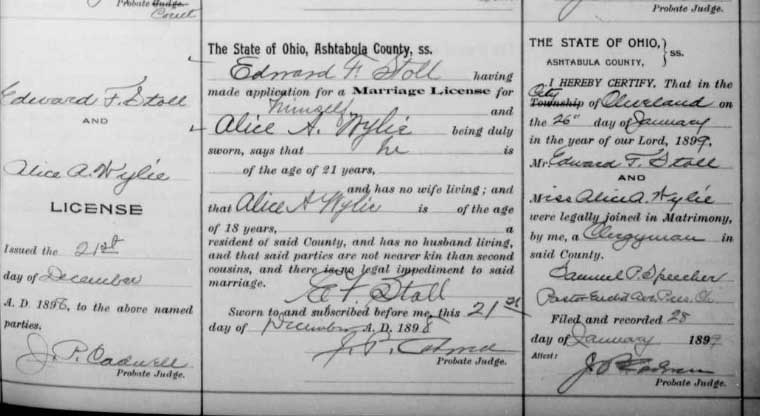 Probate Judge.
Court
Edward F. Stoll
AND
Alice A. Wylie
LICENSE
Issued the 21st
day of December
A. D. 1898, to the above named
parties.
J. P. Cadwell
Probate Judge.
The State of Ohio, Ashtabula County, ss.
Edward F. Stoll having
made application for a Marriage License for
himself and
Alice A. Wylie being duly
sworn, says that he is
of the age of 21 years,
and has no wife living; and
that Alice A Wylie is of the age
of 18 years, a
resident of said County, and has no husband living,
and that said parties are not nearer kin than second
cousins, and there is no legal impediment to said
marriage.
E F. Stoll
Sworn to and subscribed before me, this 21st
day of December A. D. 1898
J. P. Cadwell
Probate Judge.
Probate Judge.
THE STATE OF OHIO,
ASHTABULA COUNTY, } ss.
I HEREBY CERTIFY, That in the
City
Township of Cleveland on
the 26" day of January
in the year of our Lord, 1899,
Mr. Edward F. Stoll
AND
Miss Alice A. Wylie
were legally joined in Matrimony,
by me, a Clergyman in
said County.
Samuel P. Sprecher
Pastor Euclid Ave Pres. Ch.
Filed and recorded 28
day of January 1899
Attest:
J. P. Cadwell
Probate Judge.